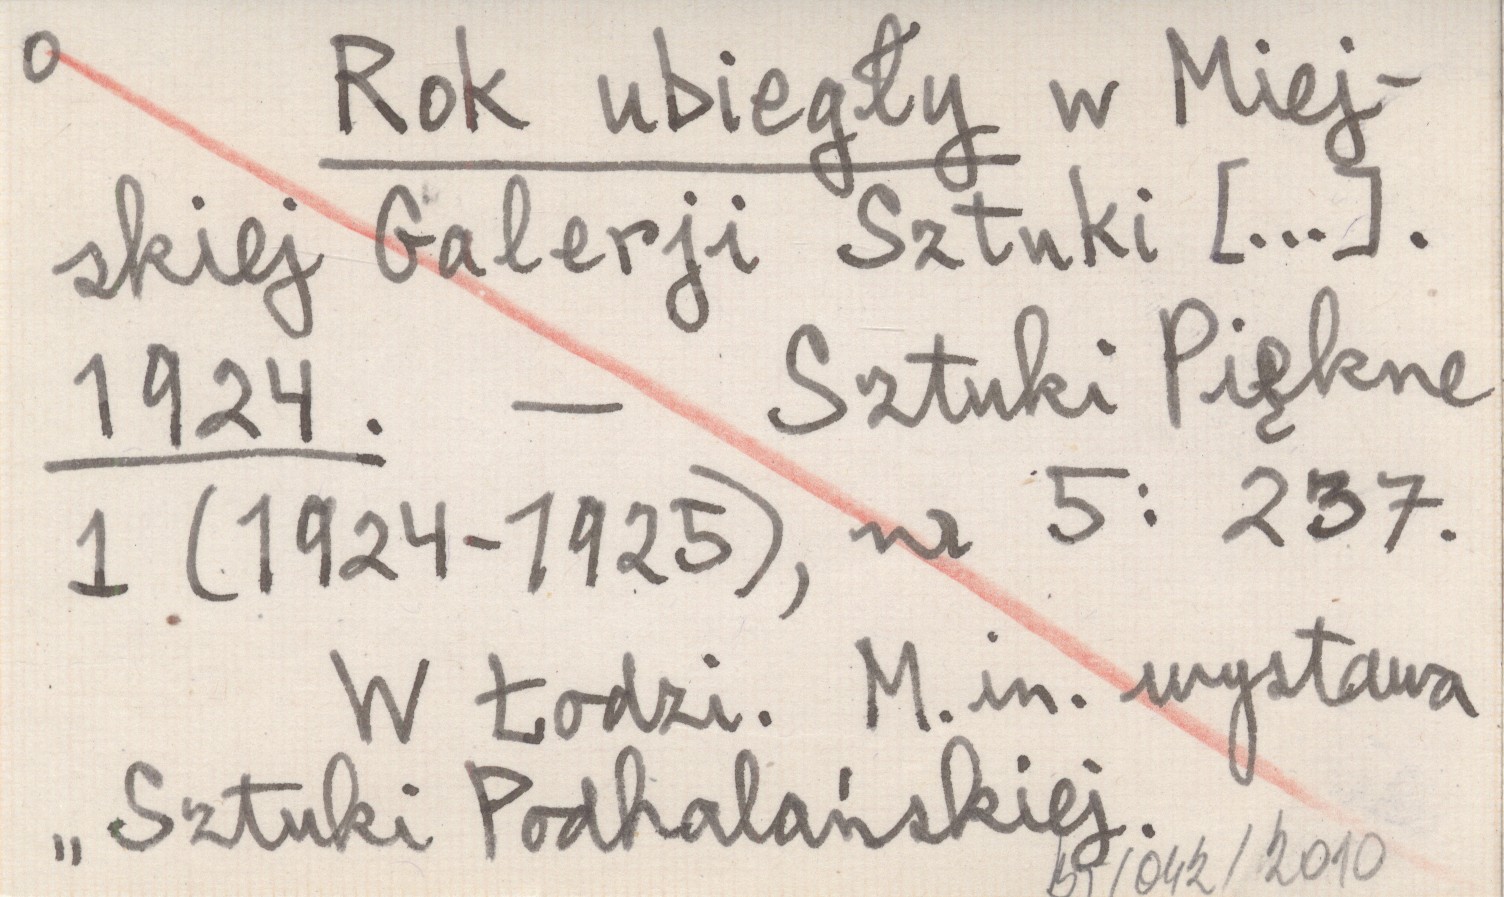 o Rok ubiegły w Miej-
skiej Galerji Sztuki [...].
1924. — Sztuki Piękne
1 (1924-1925), nr 5: 237.
W Łodzi. M.in. wystawa
„Sztuki Podhalańskiej.
/042/2010